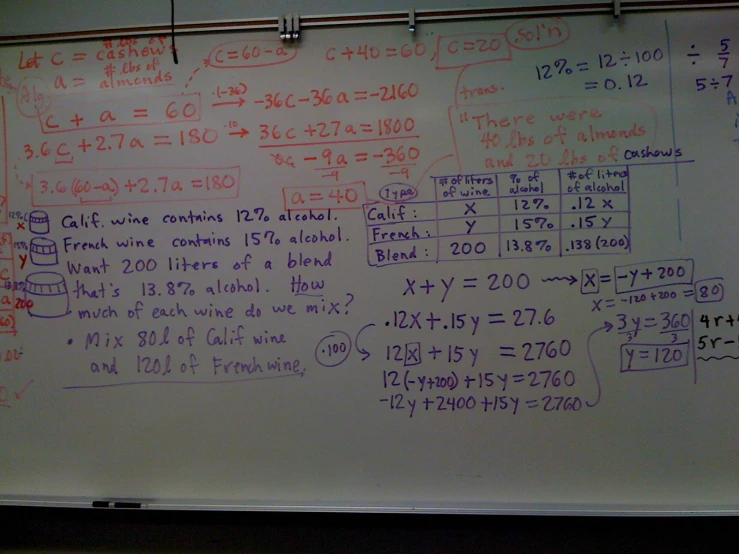 Let c = # lbs of cashews
a = # lbs of almonds
c = 60-a
c + 40 = 60, c = 20
sol'n
c + a = 60
·(-36)
-36c - 36a = -2160
3.6c + 2.7a = 180
·10
36c + 27a = 1800
-9a = -360
-9 -9
3.6(60-a) + 2.7a = 180
a = 40
trans.
"There were
40 lbs of almonds
and 20 lbs of cashews
12% = 12 ÷ 100
= 0.12
÷ 5/7
5÷7
12%
x
15%
y
200
Calif. wine contains 12% alcohol.
French wine contains 15% alcohol.
Want 200 liters of a blend
that's 13.8% alcohol. How
much of each wine do we mix?
• Mix 80l of Calif wine
and 120l of French wine.
Type # of liters of wine % of alcohol # of liters of alcohol
Calif: x 12% .12x
French: y 15% .15y
Blend: 200 13.8% .138(200)
x + y = 200
x = -y + 200
x = -120 + 200 = 80
.12x + .15y = 27.6
·100
12x + 15y = 2760
12(-y+200) + 15y = 2760
-12y + 2400 + 15y = 2760
3y = 360
3 3
y = 120
4r+
5r-